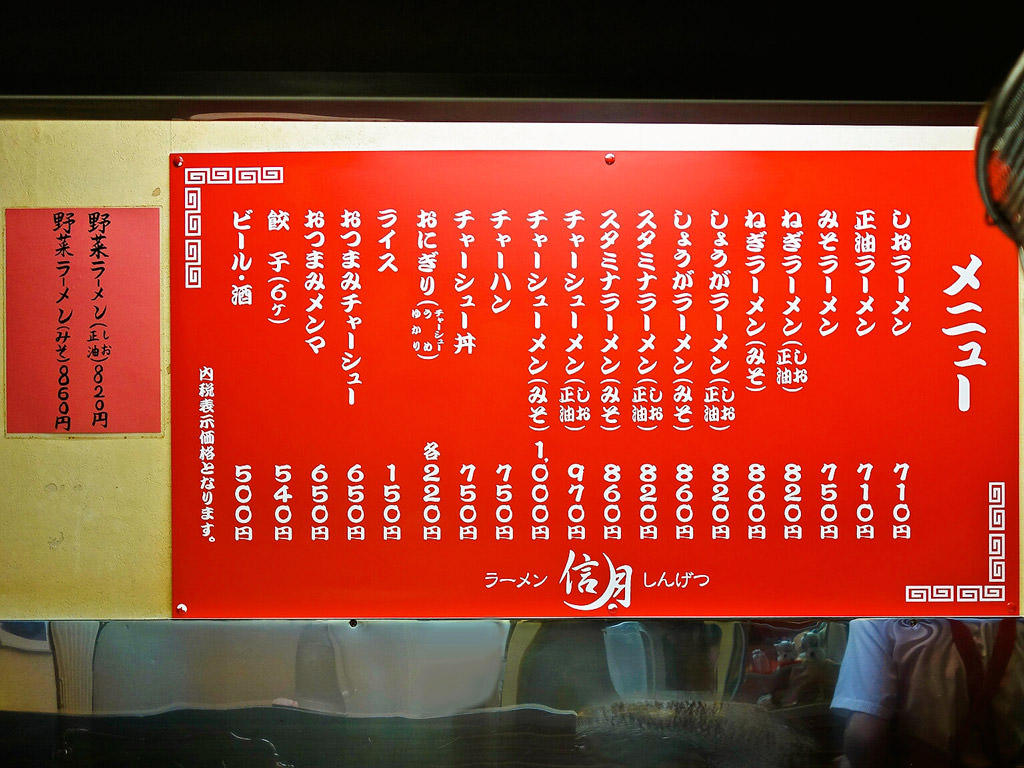 メニュー
しおラーメン 710円
正油ラーメン 710円
みそラーメン 750円
ねぎラーメン(しお正油) 820円
ねぎラーメン(みそ) 860円
しょうがラーメン(しお正油) 820円
しょうがラーメン(みそ) 860円
スタミナラーメン(しお正油) 820円
スタミナラーメン(みそ) 860円
チャーシューメン(しお正油) 970円
チャーシューメン(みそ) 1,000円
チャーハン 750円
チャーシュー丼 750円
おにぎり(チャーシューうめゆかり) 各220円
ライス 150円
おつまみチャーシュー 650円
おつまみメンマ 650円
餃子(6ヶ) 540円
ビール・酒 500円
内税表示価格となります。
ラーメン 信月 しんげつ
野菜ラーメン(しお正油)820円
野菜ラーメン(みそ)860円